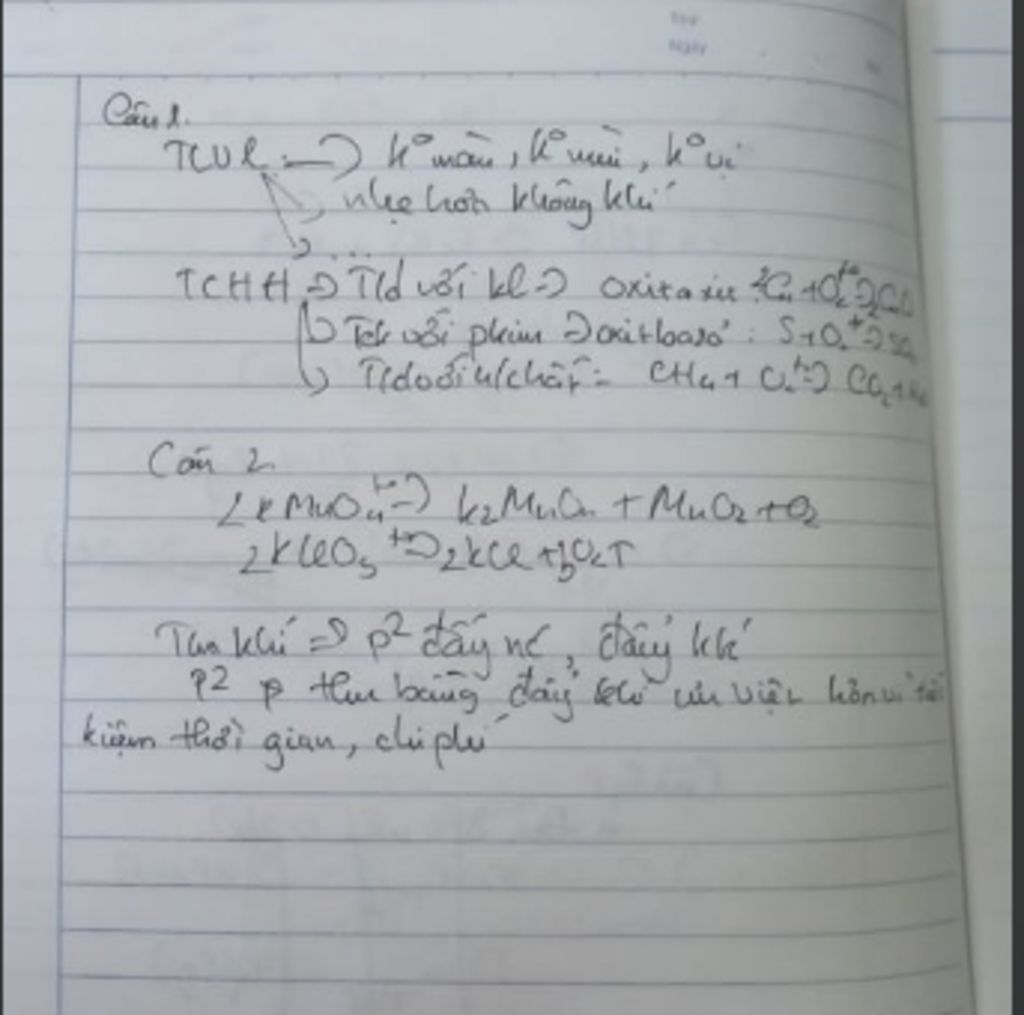 Thứ
Ngày
Câu 1.
TCVL → k° màu, k° mùi, k° vị
nhẹ hơn không khí
...
TCHH => T/d với kl => oxit axit: 2Cu + O2 t°→ 2CuO
T/d với phim => oxit bazơ: S + O2 t°→ SO2
T/d với h/chất: CH4 + O2 t°→ CO2 +
Câu 2
2KMnO4 t°→ K2MnO4 + MnO2 + O2
2KClO3 t°→ 2KCl + 3O2↑
Thu khí => p2 đẩy nc, đẩy kk
p2 thu bằng đẩy khí ưu việt hơn vì tiết
kiệm thời gian, chi phí